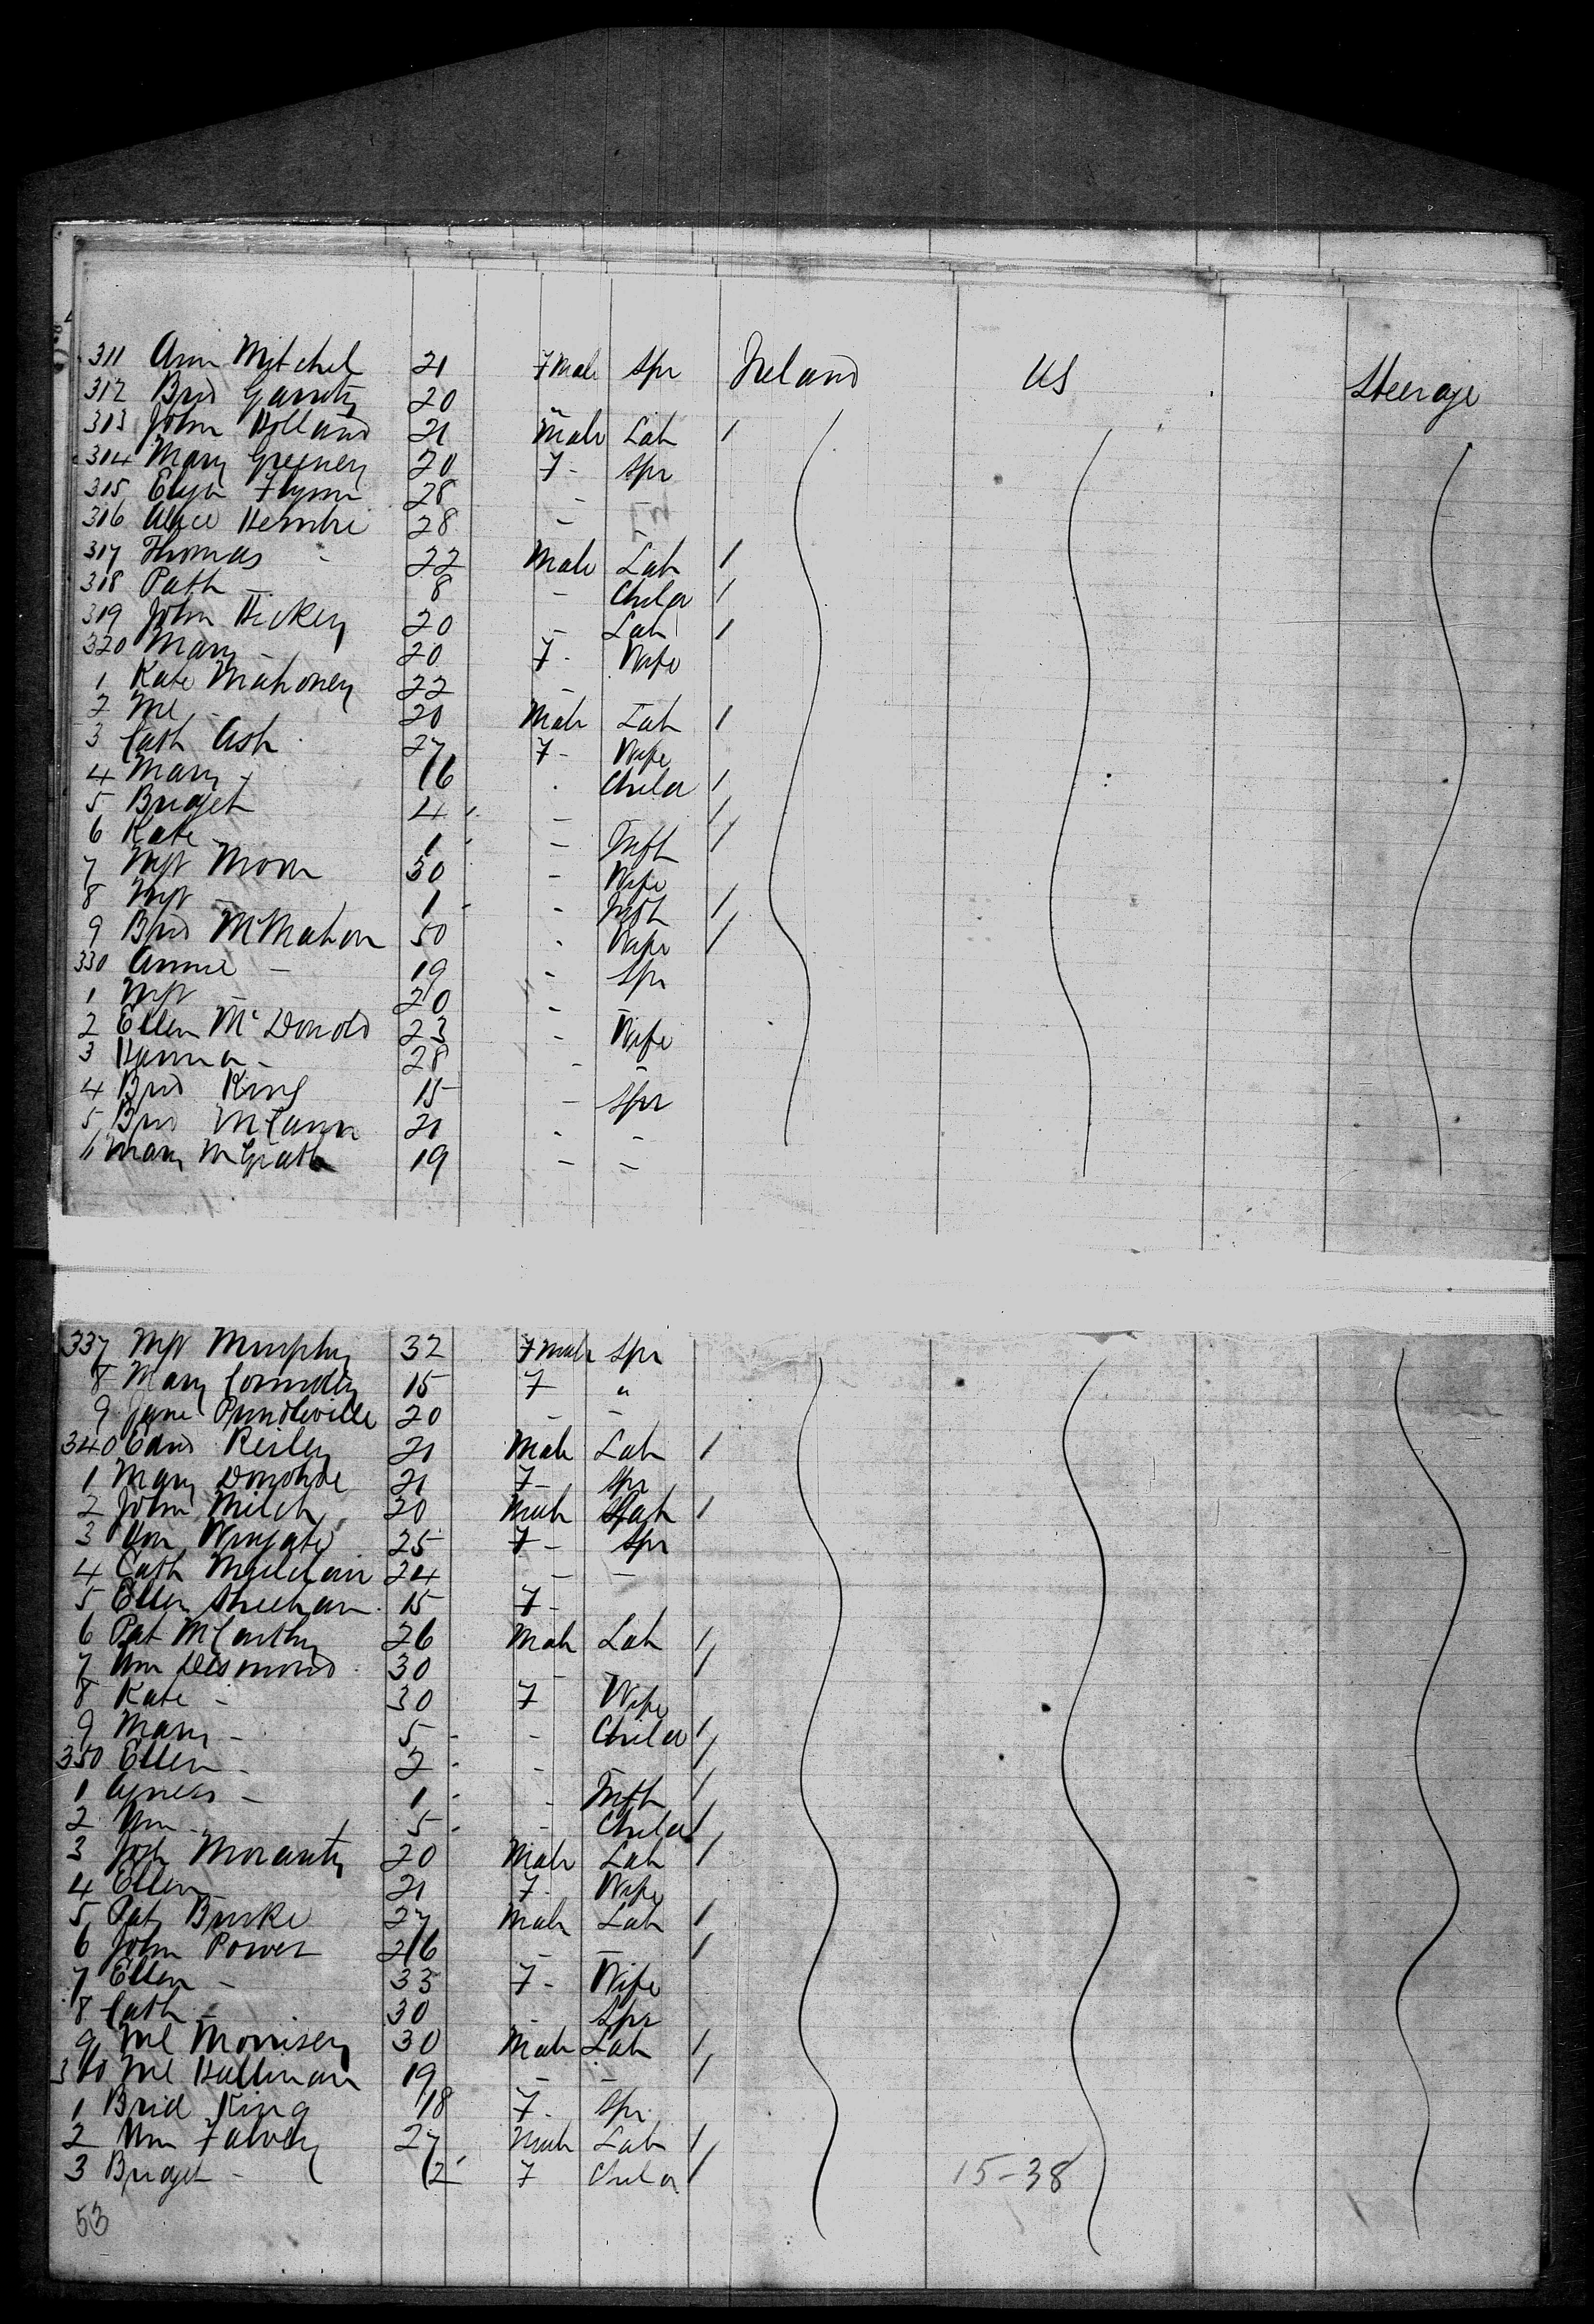 311 Ann Mitchel 21 7Male Spr Ireland US Steerage
312 Brid Garrity 20 - -
313 John Holland 21 Male Lab /
314 Mary Greeney 20 7 - Spr
315 Eliza Flynn 28 - -
316 Alice 28 -
317 Thomas - 22 Male Lab /
318 Patk - 8 - Child /
319 John Hickey 20 - Lab /
320 Mary - 20 7 - Wife
1 Kate Mahoney 22 - -
2 Ml - 20 Male Lab /
3 Cath Ash 27 7 - Wife
4 Mary - 16 - Child /
5 Bridget 4 - - /
6 Kate 1 - - Inft /
7 Mgt Moon 30 - Wife
8 Mgt - 1 - - Inft /
9 Brid McMahon 50 - Wife /
330 Annie - 19 - Spr
1 Mgt - 20 - -
2 Ellen McDonold 23 - Wife
3 Hanna - 28 - -
4 Brid King 15 - Spr
5 Brid McCann 21 - -
6 Mary McGrath 19 - -
337 Mgt Murphy 32 7Male Spr
8 Mary Connolly 15 7 "
9 Jane 20 - -
340 Edwd Reiley 21 Male Lab /
1 Mary Donohoe 21 7 - Spr
2 John Milch 20 Male Lab /
3 Wm Wingate 25 7 - Spr
4 Cath 24 - -
5 Ellen Sheehan 15 7 -
6 Pat McCarthy 26 Male Lab /
7 Wm Desmond 30 - - /
8 Kate - 30 7 Wife
9 Mary - 5 - - Child /
350 Ellen - 2 - - /
1 Agness - 1 - - Inft /
2 Wm - 5 - - Child /
3 Josh Moriarty 20 Male Lab /
4 Ellen - 21 7 - Wife
5 Pat Burke 27 Male Lab /
6 John Power 26 - - /
7 Ellen - 33 7 - Wife
8 Cath - 30 - Spr
9 Ml Morrisey 30 Male Lab /
360 Ml Hallinan 19 - - /
1 Brid King 18 7 - Spr
2 Wm Falvey 27 Male Lab /
3 Bridget - 2 7 Child / 15-38
53